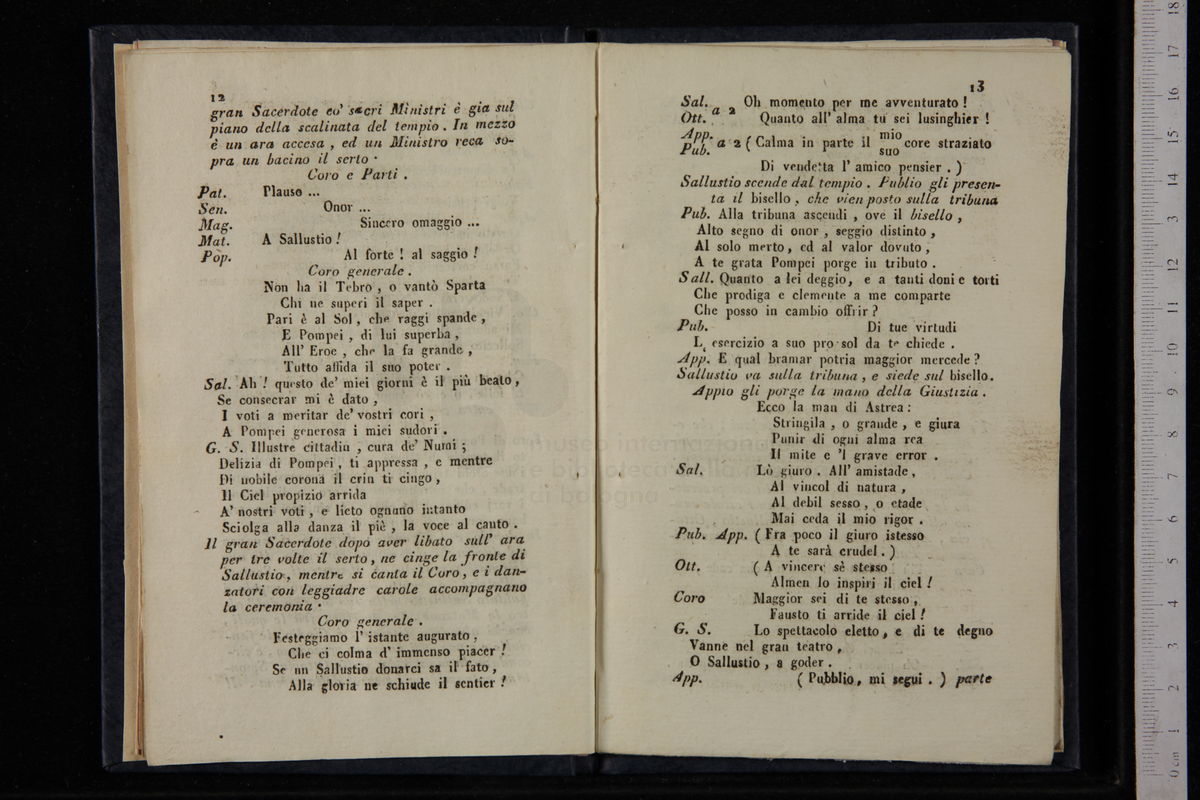 12
gran Sacerdote co' sacri Ministri è gia sul
piano della scalinata del tempio. In mezzo
è un ara accesa, ed un Ministro reca so-
pra un bacino il serto.
Coro e Parti.
Pat. Plauso ...
Sen. Onor ...
Mag. Sincero omaggio ...
Mat. A Sallustio!
Pop. Al forte! al saggio!
Coro generale.
Non ha il Tebro, o vantò Sparta
Chi ne superi il saper.
Pari è al Sol, che raggi spande,
E Pompei, di lui superba,
All' Eroe, che la fa grande,
Tutto affida il suo poter.
Sal. Ah! questo de' miei giorni è il più beato,
Se consecrar mi è dato,
I voti a meritar de' vostri cori,
A Pompei generosa i miei sudori.
G. S. Illustre cittadin, cura de' Numi;
Delizia di Pompei, ti appressa, e mentre
Di nobile corona il crin ti cingo,
Il Ciel propizio arrida
A' nostri voti, e lieto ognuno intanto
Sciolga alla danza il piè, la voce al canto.
Il gran Sacerdote dopo aver libato sull' ara
per tre volte il serto, ne cinge la fronte di
Sallustio, mentre si canta il Coro, e i dan-
zatori con leggiadre carole accompagnano
la ceremonia.
Coro generale.
Festeggiamo l' istante augurato,
Che ci colma d' immenso piacer!
Se un Sallustio donarci sa il fato,
Alla gloria ne schiude il sentier!
13
Sal. Ott. a 2 Oh momento per me avventurato!
Quanto all' alma tu sei lusinghier!
App. Pub. a 2 ( Calma in parte il mio suo core straziato
Di vendetta l' amico pensier. )
Sallustio scende dal tempio. Publio gli presen-
ta il bisello, che vien posto sulla tribuna
Pub. Alla tribuna ascendi, ove il bisello,
Alto segno di onor, seggio distinto,
Al solo merto, ed al valor dovuto,
A te grata Pompei porge in tributo.
Sall. Quanto a lei deggio, e a tanti doni e torti
Che prodiga e clemente a me comparte
Che posso in cambio offrir?
Pub. Di tue virtudi
L' esercizio a suo pro sol da te chiede.
App. E qual bramar potria maggior mercede?
Sallustio va sulla tribuna, e siede sul bisello.
Appio gli porge la mano della Giustizia.
Ecco la man di Astrea:
Stringila, o grande, e giura
Punir di ogni alma rea
Il mite e 'l grave error.
Sal. Lò giuro. All' amistade,
Al vincol di natura,
Al debil sesso, o etade
Mai ceda il mio rigor.
Pub. App. ( Fra poco il giuro istesso
A te sarà crudel. )
Ott. ( A vincere sè stesso
Almen lo inspiri il ciel!
Coro Maggior sei di te stesso,
Fausto ti arride il ciel!
G. S. Lo spettacolo eletto, e di te degno
Vanne nel gran teatro,
O Sallustio, a goder.
App. ( Pubblio, mi segui. ) parte
museo internazionale
e biblioteca della
di bologna